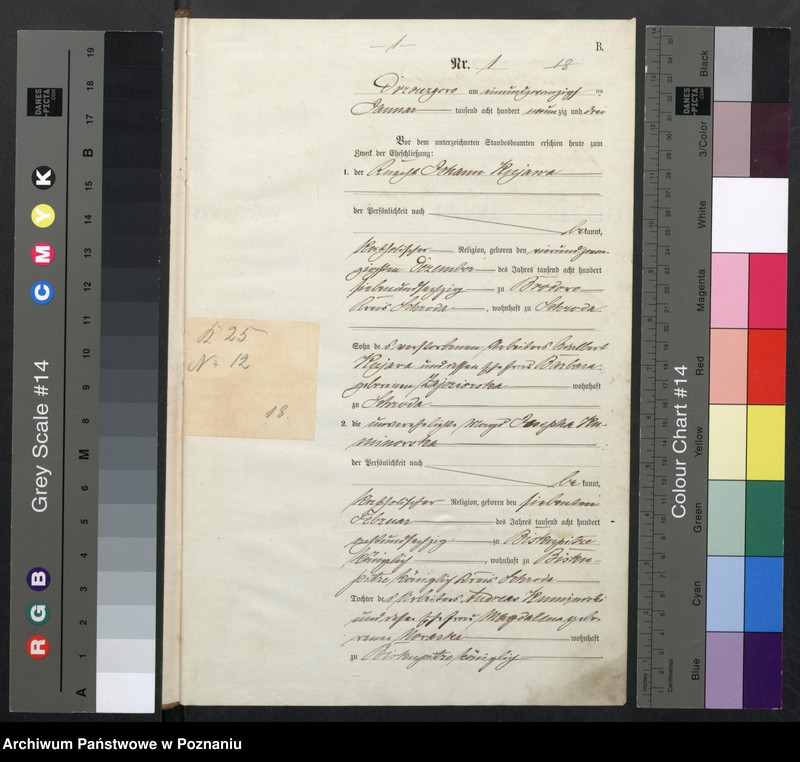 -1-
B.
Nr. 1
18
am einundzwanzigsten
Januar tausend acht hundert neunzig und drei
Vor dem unterzeichneten Standesbeamten erschien heute zum
Zweck der Eheschließung:
1. der Knecht Johann Kujawa
der Persönlichkeit nach
bekannt,
katholischer Religion, geboren den vierundzwan-
zigsten Dezember des Jahres tausend acht hundert
siebenundsechzig zu Brodowo
Kreis Schroda, wohnhaft zu Schroda
Sohn des verstorbenen Arbeiters Adalbert
Kujawa und dessen Ehefrau Barbara
geborenen wohnhaft
zu Schroda
2. die unverehelichte Magd Josepha Ku-
minowska
der Persönlichkeit nach
bekannt,
katholischer Religion, geboren den siebenten
Februar des Jahres tausend acht hundert
zu Biskupitze
königlich, wohnhaft zu Bisku-
pitze königlich Kreis Schroda
Tochter des Arbeiters Andreas Kuminowski
und dessen Ehefrau Magdalena gebo-
renen wohnhaft
zu Biskupitze königlich
K 25
No 12
18.
Grey Scale #14
Colour Chart #14
DANES
-PICTA
.COM
DANES
-PICTA
.COM
R G B
C M Y K
A 1 2 3 4 5 6 M 8 9 10 11 12 13 14 15 B 17 18 19
Black
3/Color
White
Magenta
Red
Yellow
Green
Cyan
Blue
Inches
Centimetres
Archiwum Państwowe w Poznaniu